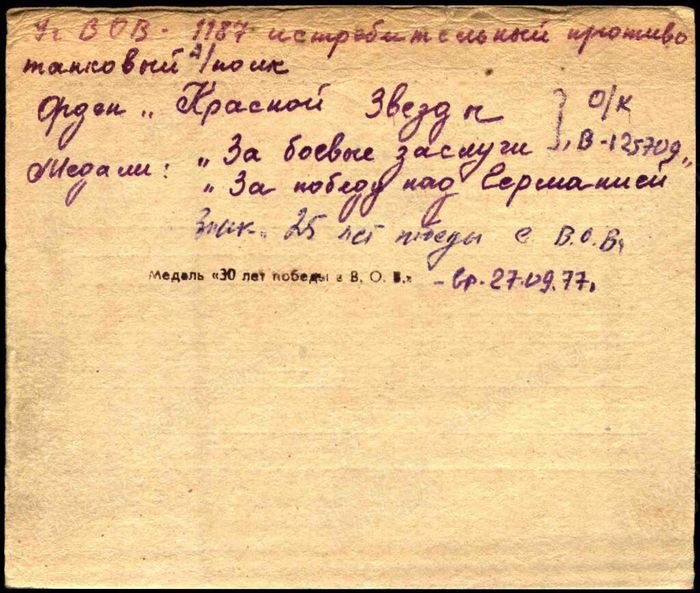 Уч ВОВ - 1187 истребительный противо
танковый а/полк
Орден „ Красной Звезды } о/к
Медали: „ За боевые заслуги } „В-125709„
„ За победу над Германией
Знак „ 25 лет победы в В.О.В„
Медаль «30 лет победы в В. О. В.» - вр. 27.09.77.